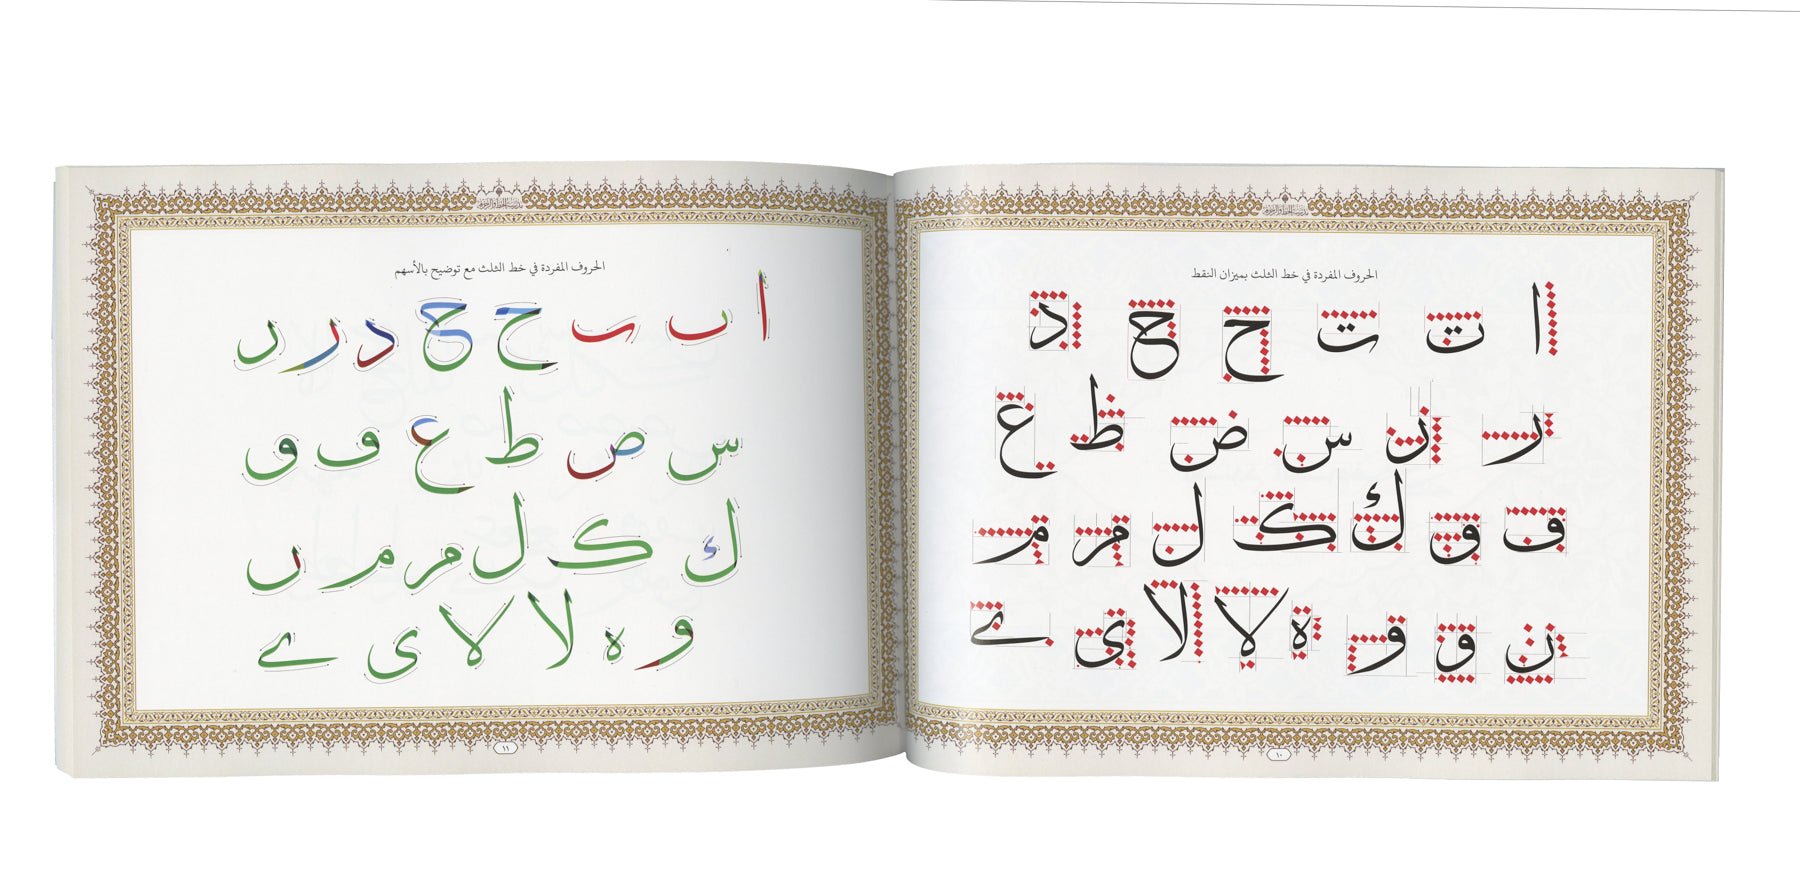 الحروف المفردة في خط الثلث بميزان النقط
ا ت ت ح ح د
ر ن س ض ظ ع
ف و ك ك ل م م
ن و و ه لا لا ي ے
١٠
الحروف المفردة في خط الثلث مع توضيح بالأسهم
ا ب ب ح ح د ر ر
س ص ط ع ف و
ك ك ل م م ں
و ه لا لا ى ے
١١